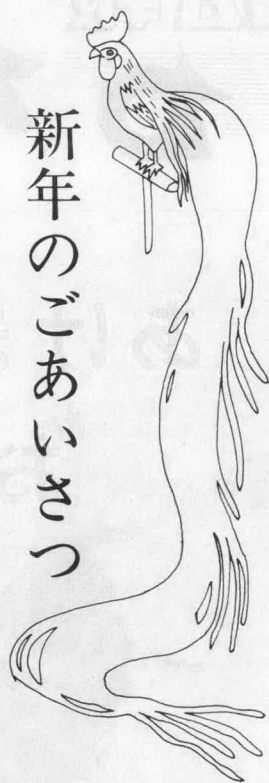 新年のごあいさつ